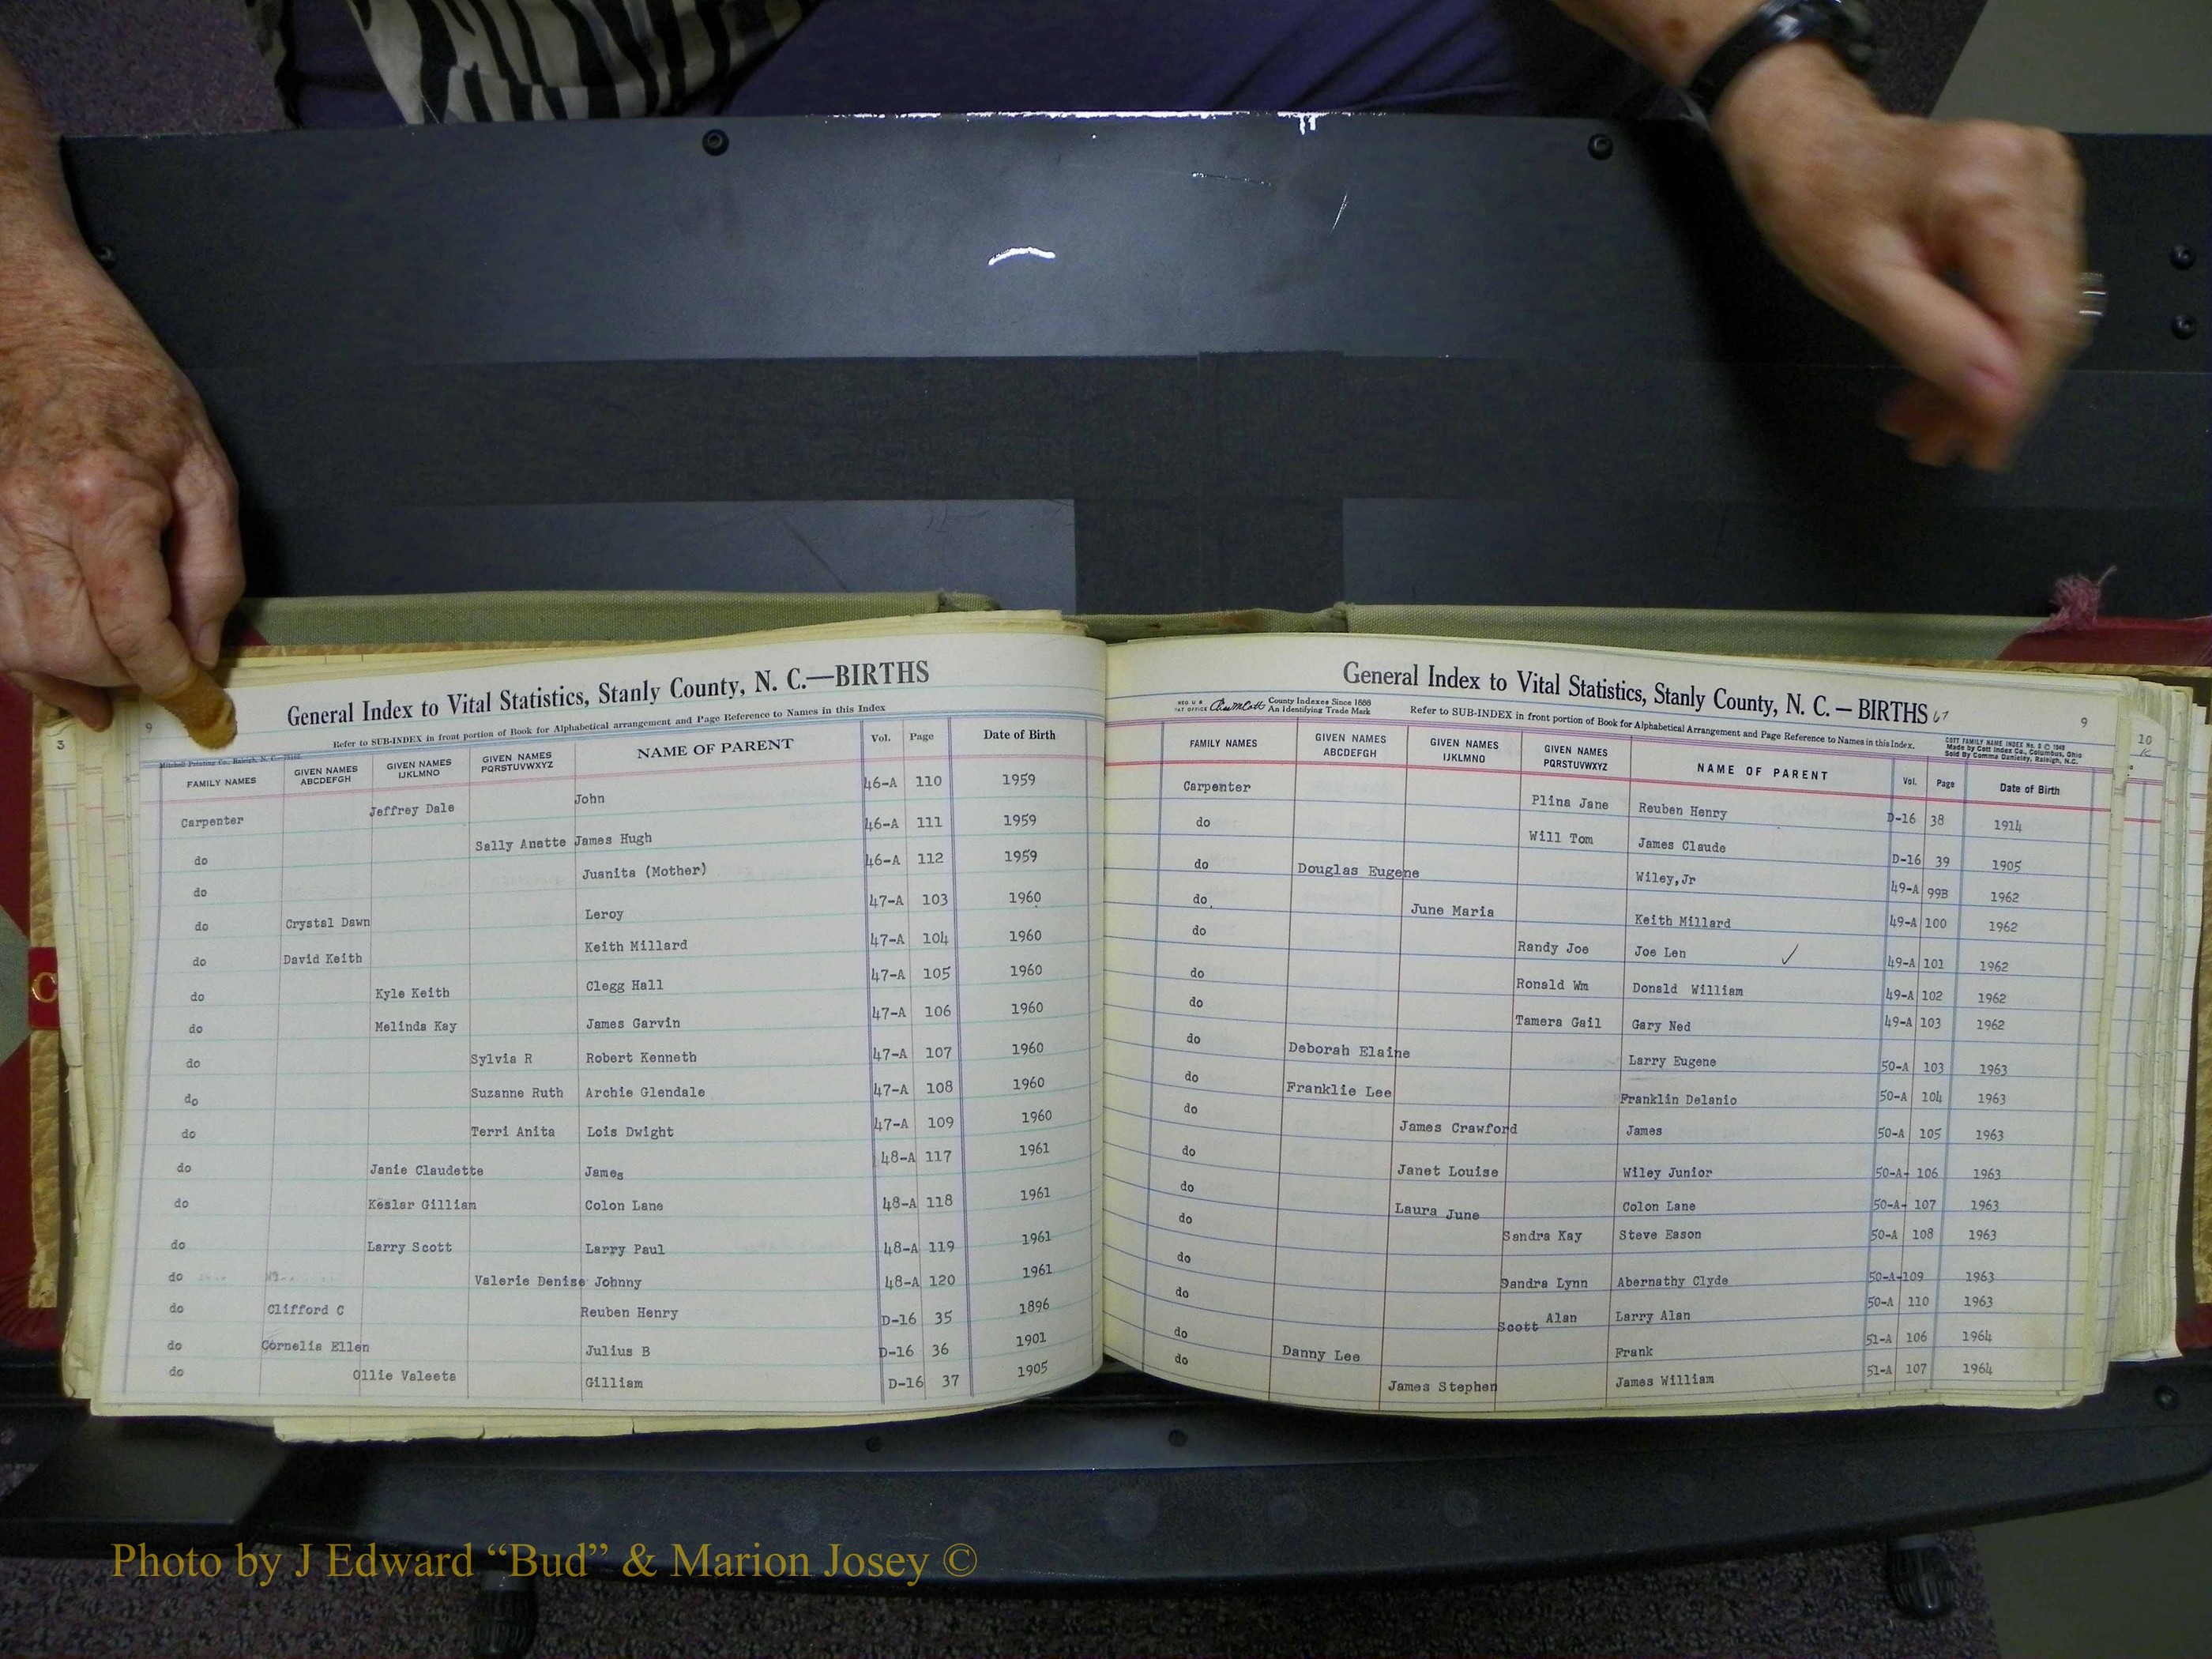 General Index to Vital Statistics, Stanly County, N. C.—BIRTHS
9
Refer to SUB-INDEX in front portion of Book for Alphabetical arrangement and Page Reference to Names in this Index
3
FAMILY NAMES GIVEN NAMES ABCDEFGH GIVEN NAMES IJKLMNO GIVEN NAMES PQRSTUVWXYZ NAME OF PARENT Vol. Page Date of Birth
Carpenter Jeffrey Dale John 46-A 110 1959
do Sally Anette James Hugh 46-A 111 1959
do Juanita (Mother) 46-A 112 1959
do Crystal Dawn Leroy 47-A 103 1960
do David Keith Keith Millard 47-A 104 1960
do Kyle Keith Clegg Hall 47-A 105 1960
do Melinda Kay James Garvin 47-A 106 1960
do Sylvia R Robert Kenneth 47-A 107 1960
do Suzanne Ruth Archie Glendale 47-A 108 1960
do Terri Anita Lois Dwight 47-A 109 1960
do Janie Claudette James 48-A 117 1961
do Kesler Gilliam Colon Lane 48-A 118 1961
do Larry Scott Larry Paul 48-A 119 1961
do Valerie Denise Johnny 48-A 120 1961
do Clifford C Reuben Henry D-16 35 1896
do Cornelia Ellen Julius B D-16 36 1901
do Ollie Valeeta Gilliam D-16 37 1905
C
General Index to Vital Statistics, Stanly County, N. C. — BIRTHS 67
9
10
County Indexes Since 1888
An Identifying Trade Mark
Refer to SUB-INDEX in front portion of Book for Alphabetical Arrangement and Page Reference to Names in this Index.
COTT FAMILY NAME INDEX
Made by Cott Index Co., Columbus, Ohio
Sold By Comma Danieley, Raleigh, N.C.
FAMILY NAMES GIVEN NAMES ABCDEFGH GIVEN NAMES IJKLMNO GIVEN NAMES PQRSTUVWXYZ NAME OF PARENT Vol. Page Date of Birth
Carpenter Plina Jane Reuben Henry D-16 38 1914
do Will Tom James Claude D-16 39 1905
do Douglas Eugene Wiley,Jr 49-A 99B 1962
do. June Maria Keith Millard 49-A 100 1962
do Randy Joe Joe Len ✓ 49-A 101 1962
do Ronald Wm Donald William 49-A 102 1962
do Tamera Gail Gary Ned 49-A 103 1962
do Deborah Elaine Larry Eugene 50-A 103 1963
do Franklie Lee Franklin Delanio 50-A 104 1963
do James Crawford James 50-A 105 1963
do Janet Louise Wiley Junior 50-A- 106 1963
do Laura June Colon Lane 50-A- 107 1963
do Sandra Kay Steve Eason 50-A 108 1963
do Sandra Lynn Abernathy Clyde 50-A-109 1963
do Scott Alan Larry Alan 50-A 110 1963
do Danny Lee Frank 51-A 106 1964
do James Stephen James William 51-A 107 1964
Photo by J Edward “Bud” & Marion Josey ©